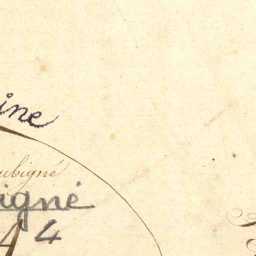 ine
ubigné
igné
44